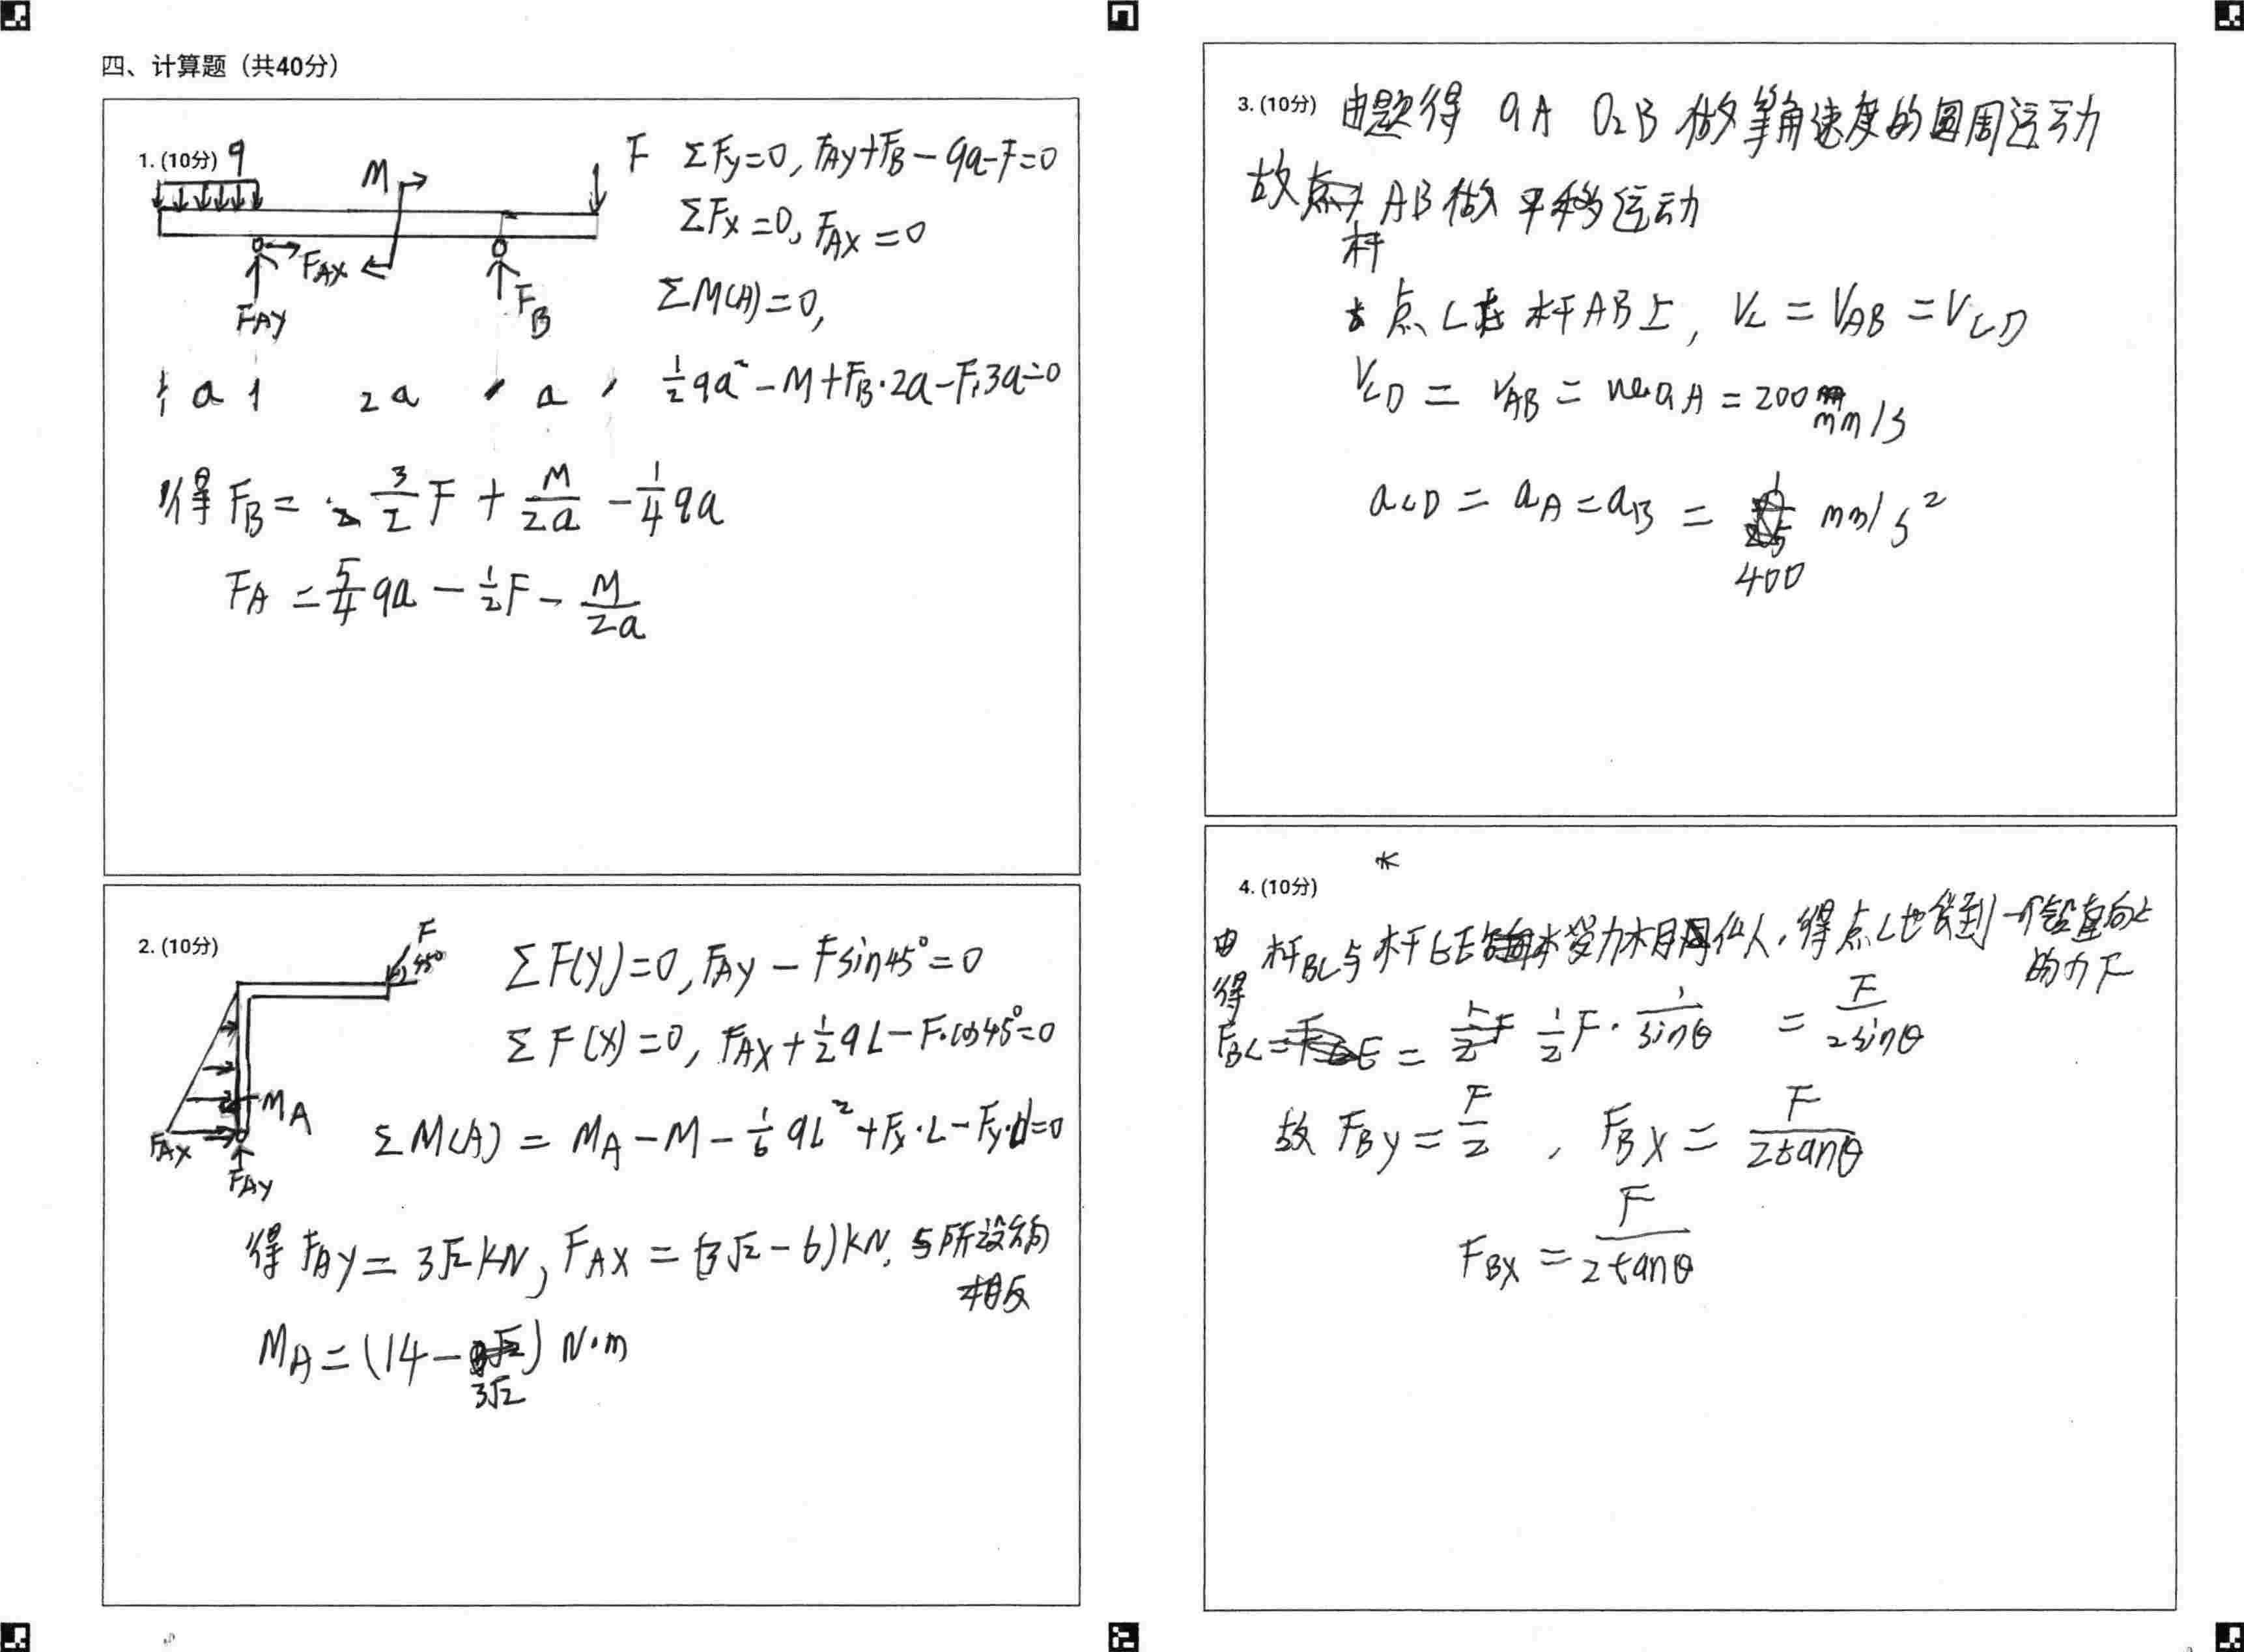 四、计算题（共40分）
1. (10分) q
M
F
F_AX
F_AY
F_B
a 2a a
ΣFy=0, F_AY+F_B-qa-F=0
ΣFx=0, F_AX=0
ΣM(A)=0,
½qa²-M+F_B·2a-F·3a=0
得 F_B= 3/2 F + M/2a - 1/4 qa
F_A = 5/4 qa - ½F - M/2a
2. (10分)
F
45°
M_A
F_AX
F_AY
ΣF(y)=0, F_AY - Fsin45°=0
ΣF(x)=0, F_AX+½qL-F·cos45°=0
ΣM(A) = M_A-M-1/6 qL²+Fx·L-Fy·d=0
得 F_AY = 3√2 kN, F_AX = (3√2-6)kN, 与所设方向
相反
M_A=(14-3√2) N·m
3. (10分) 由题得 O₁A O₂B 做等角速度的圆周运动
故杆AB做平移运动
点C在杆AB上, V_C = V_AB = V_CD
V_CD = V_AB = w·O₁A = 200mm/s
a_CD = a_A = a_B = 400 mm/s²
4. (10分)
由杆BC与杆CE受力相似, 得点C也受到一个铅直向上
的力F
得
F_BC = ½F · 1/sinθ = F/2sinθ
故 F_By = F/2 , F_Bx = F/2tanθ
F_Bx = F/2tanθ